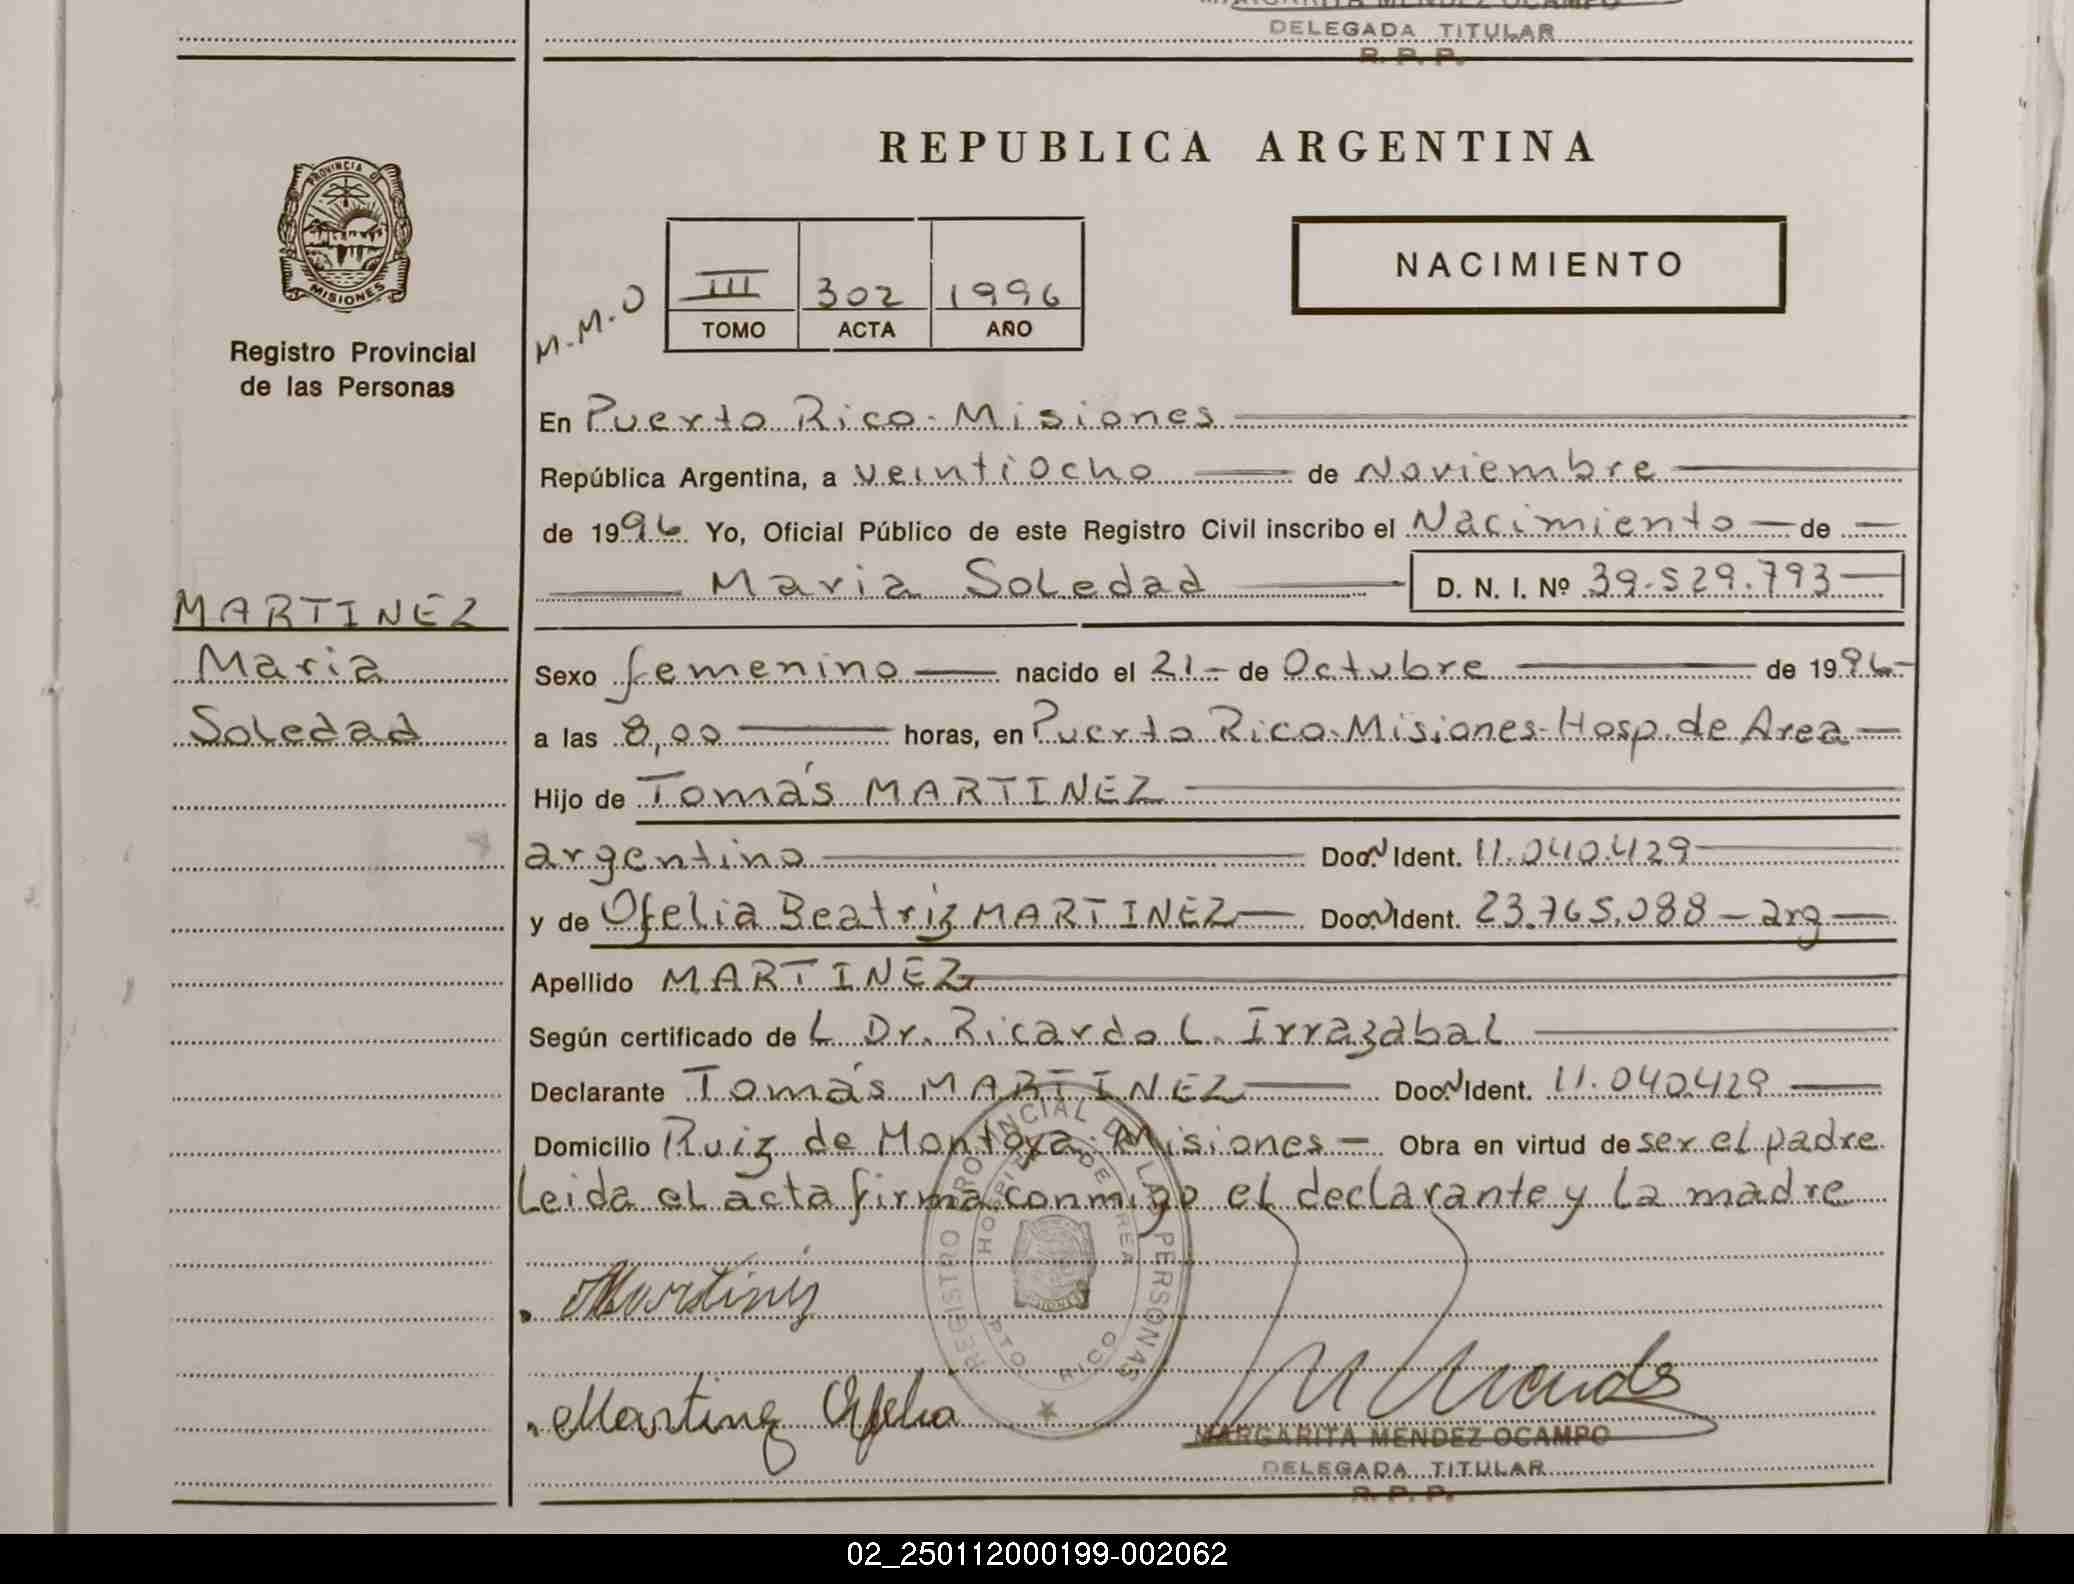 MARGARITA MENDEZ OCAMPO
DELEGADA TITULAR
R. P. P.
REPUBLICA ARGENTINA
PROVINCIA DE
MISIONES
Registro Provincial
de las Personas
M.M.O
III 302 1996
TOMO ACTA AÑO
NACIMIENTO
En Puerto Rico-Misiones
República Argentina, a veintiocho de Noviembre
de 1996 Yo, Oficial Público de este Registro Civil inscribo el Nacimiento de
Maria Soledad D. N. I. Nº 39.529.793
MARTINEZ
Maria
Soledad
Sexo femenino nacido el 21 de Octubre de 1996
a las 8,00 horas, en Puerto Rico-Misiones-Hosp. de Area
Hijo de Tomás MARTINEZ
argentino Doc. Ident. 11.040.429
y de Ofelia Beatriz MARTINEZ Doc. Ident. 23.765.088 - arg
Apellido MARTINEZ
Según certificado de L Dr. Ricardo L. Irrazabal
Declarante Tomás MARTINEZ Doc. Ident. 11.040.429
Domicilio Ruiz de Montoya-Misiones Obra en virtud de ser el padre
Leida el acta firma conmigo el declarante y la madre
REGISTRO PROVINCIAL DE LAS PERSONAS
HOSPITAL DE AREA
PTO RICO
Martinez
Martinez Ofelia
M Mendez
MARGARITA MENDEZ OCAMPO
DELEGADA TITULAR
R. P. P.
02_250112000199-002062